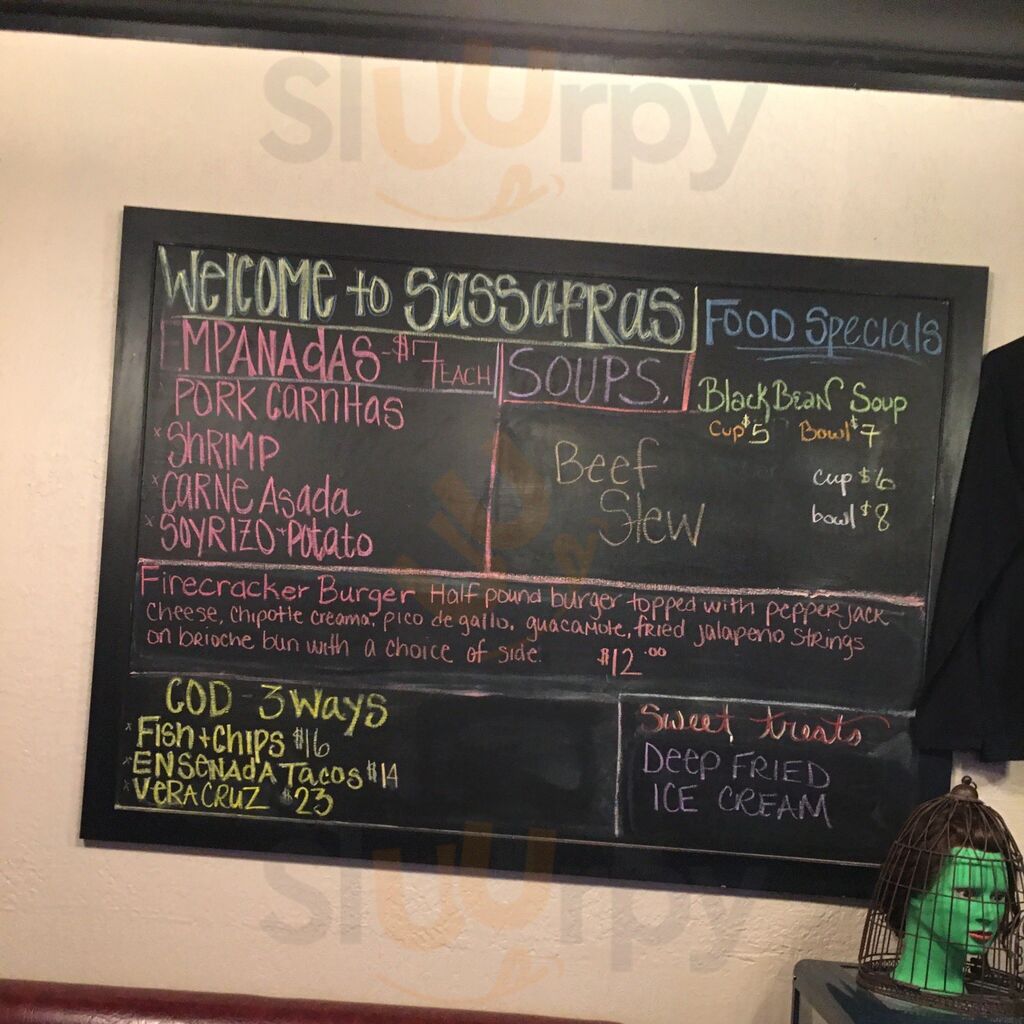 sluurpy
Welcome to Sassafras
MPANAdAS - $7 EACH
PORK CARNitas
x SHRIMP
x CARNE Asada
x SOYRIZO + Potato
SOUPS.
Beef
Stew
FOOD Specials
Black Bean Soup
Cup $5 Bowl $7
cup $6
bowl $8
Firecracker Burger Half pound burger topped with pepper jack
cheese, chipotle creama, pico de gallo, guacamole, fried jalapeno strings
on brioche bun with a choice of side. $12.00
COD - 3 Ways
x Fish + Chips $16
x ENSENADA Tacos $14
x VERACRUZ $23
Sweet treats
DEEP FRIED
ICE CREAM
sluurpy